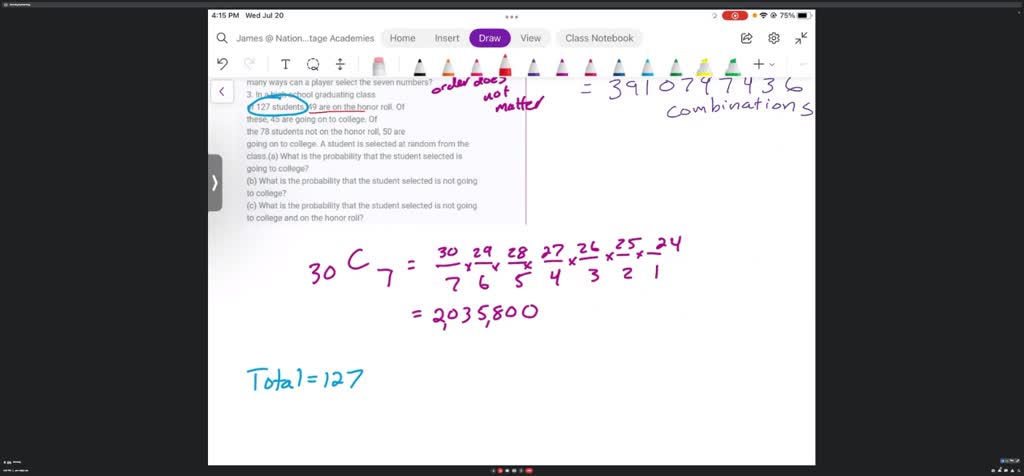 4:15 PM Wed Jul 20
75%
James @ Nation...tage Academies
Home Insert Draw View Class Notebook
many ways can a player select the seven numbers?
3. In a high school graduating class
of 127 students, 49 are on the honor roll. Of
these, 45 are going on to college. Of
the 78 students not on the honor roll, 50 are
going on to college. A student is selected at random from the
class.(a) What is the probability that the student selected is
going to college?
(b) What is the probability that the student selected is not going
to college?
(c) What is the probability that the student selected is not going
to college and on the honor roll?
order does
not
matter
= 3910797436
combinations
30 C 7 = 30/7 × 29/6 × 28/5 × 27/4 × 26/3 × 25/2 × 24/1
= 2,035,800
Total = 127